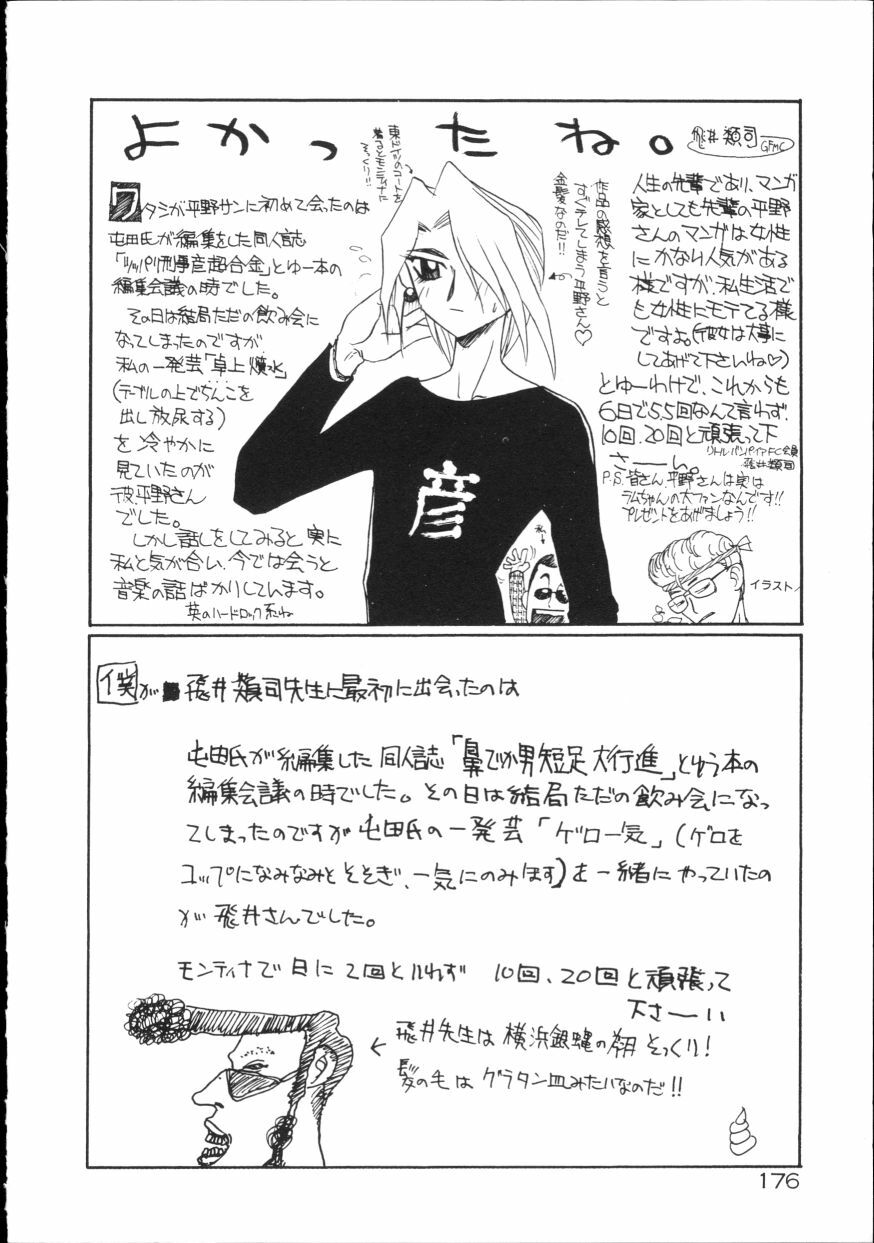 よかったね。
飛井類司
GFMC
東ドイツのコートを
着るとモンティナた
そっくり!!
ワタシが平野サンに初めて会ったのは
屯田氏が編集をした同人誌
「ツッパリ刑事彦超合金」とゆー本の
編集会議の時でした。
その日は結局ただの飲み会に
なってしまったのですが
私の一発芸「卓上噴水」
(テーブルの上でちんこを
出し放尿する)
を冷やかに
見ていたのが
彼、平野さん
でした。
しかし話しをしてみると実に
私と気が合い、今では会うと
音楽の話ばかりしています。
英のハードロック系ね
作品の感想を言うと
すぐテレてしまう平野さん♡
金髪なのだ!!
彦
私
人生の先輩であり、マンガ
家としても先輩の平野
さんのマンガは女性
にかなり人気がある
様ですが、私生活で
も女性にモテてる様
ですね(彼女は大事に
してあげて下さいね♡)
とゆーわけで、これからも
6日で5.5回なんて言わず、
10回、20回と頑張って下
さーい。
リトルバンパイアFC会員
飛井類司
P.S.皆さん、平野さんは実は
ラムちゃんの大ファンなんです!!
プレゼントをあげましょう!!
イラスト
僕が飛井類司先生に最初に出会ったのは
屯田氏が編集した同人誌「鼻でか男短足大行進」とゆう本の
編集会議の時でした。その日は結局ただの飲み会になっ
てしまったのですが屯田氏の一発芸「ゲロ一気」(ゲロを
コップになみなみとそそぎ、一気にのみほす)を一緒にやっていたの
が飛井さんでした。
モンティナで日に2回といわず 10回、20回と頑張って
下さーい
飛井先生は横浜銀蝿の翔そっくり!
髪の毛はグラタン皿みたいなのだ!!
176